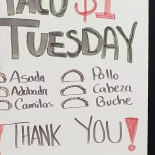 TACO $1
TUESDAY
Asada Pollo
Adobada Cabeza
Carnitas Buche
! THANK YOU!